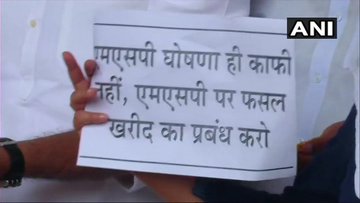 ANI
एमएसपी घोषणा ही काफी
नहीं, एमएसपी पर फसल
खरीद का प्रबंध करो